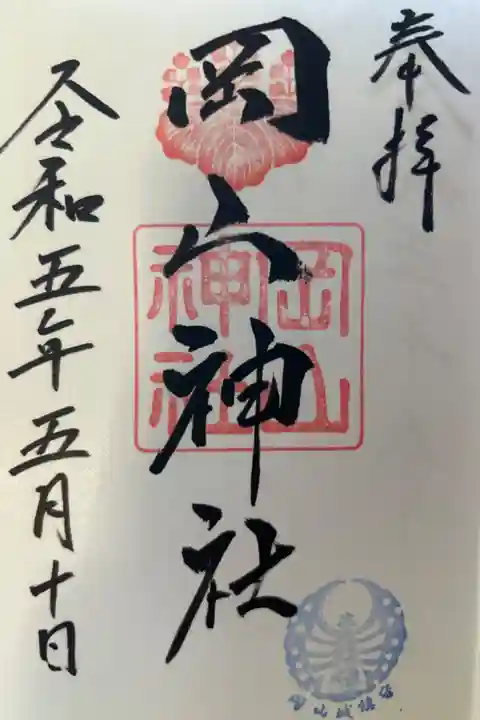 奉拝
岡山神社
岡山神社
令和五年五月十日